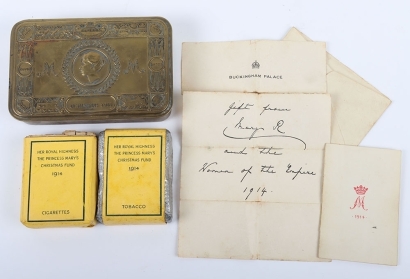 HER ROYAL HIGHNESS
THE PRINCESS MARY'S
CHRISTMAS FUND
1914
CIGARETTES
HER ROYAL HIGHNESS
THE PRINCESS MARY'S
CHRISTMAS FUND
1914
TOBACCO
BUCKINGHAM PALACE
Gift from
Mary R
and the
Women of the Empire
1914.
M
1914